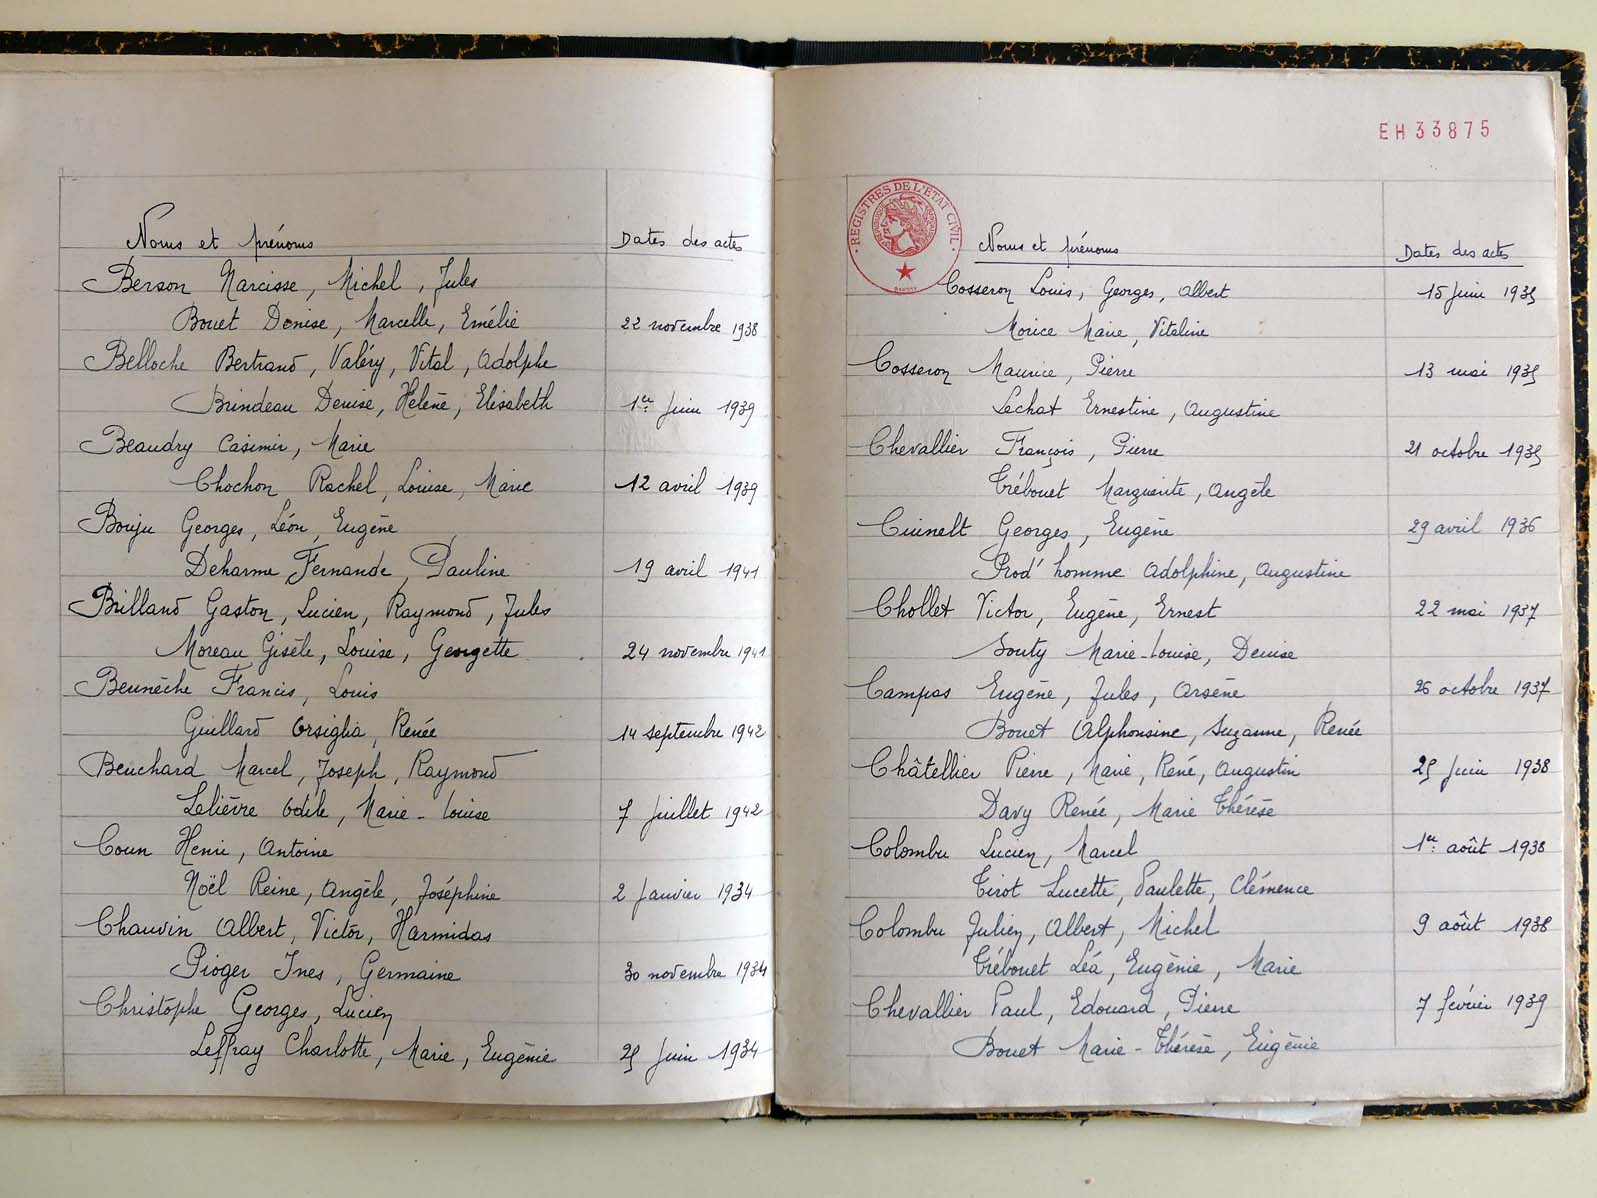 Noms et prénoms Dates des actes
Berson Narcisse, Michel, Jules
Bouet Denise, Marcelle, Emélie 22 novembre 1938
Belloche Bertrand, Valéry, Vital, Adolphe
Brindeau Denise, Helène, Elisabeth 1er Juin 1939
Beaudry Casimir, Marie
Chochon Rachel, Louise, Marie 12 avril 1939
Bouju Georges, Léon, Eugène
Deharme Fernande, Pauline 19 avril 1941
Brilland Gaston, Lucien, Raymond, Jules
Moreau Gisèle, Louise, Georgette 24 novembre 1941
Beunèche Francis, Louis
Guillard Orsiglia, Renée 14 septembre 1942
Beuchard Marcel, Joseph, Raymond
Lelièvre Odile, Marie-Louise 7 Juillet 1942
Coun Henri, Antoine
Noël Reine, Angèle, Joséphine 2 Janvier 1934
Chauvin Albert, Victor, Harmidas
Pioger Ines, Germaine 30 novembre 1934
Christophe Georges, Lucien
Leffray Charlotte, Marie, Eugènie 25 Juin 1934
EH33875
REGISTRES DE L'ETAT CIVIL
Noms et prénoms Dates des actes
Cosseron Louis, Georges, Albert 15 Juin 1935
Morice Marie, Vitaline
Cosseron Maurice, Pierre 13 mai 1935
Lechat Ernestine, Augustine
Chevallier François, Pierre 21 octobre 1935
Trébouet Marguerite, Angèle
Cuinelt Georges, Eugène 29 avril 1936
Prod'homme Adolphine, Augustine
Chollet Victor, Eugène, Ernest 22 mai 1937
Souty Marie-Louise, Denise
Campas Eugène, Jules, Arsène 26 octobre 1937
Bouet Alphonsine, Suzanne, Renée
Châtellier Pierre, Marie, René, Augustin 25 Juin 1938
Davy Renée, Marie Thérèse
Colombu Lucien, Marcel 1er août 1938
Tirot Lucette, Paulette, Clémence
Colombu Julien, Albert, Michel 9 août 1938
Trébouet Léa, Eugènie, Marie
Chevallier Paul, Edouard, Pierre 7 février 1939
Bouet Marie-Thérèse, Eugènie